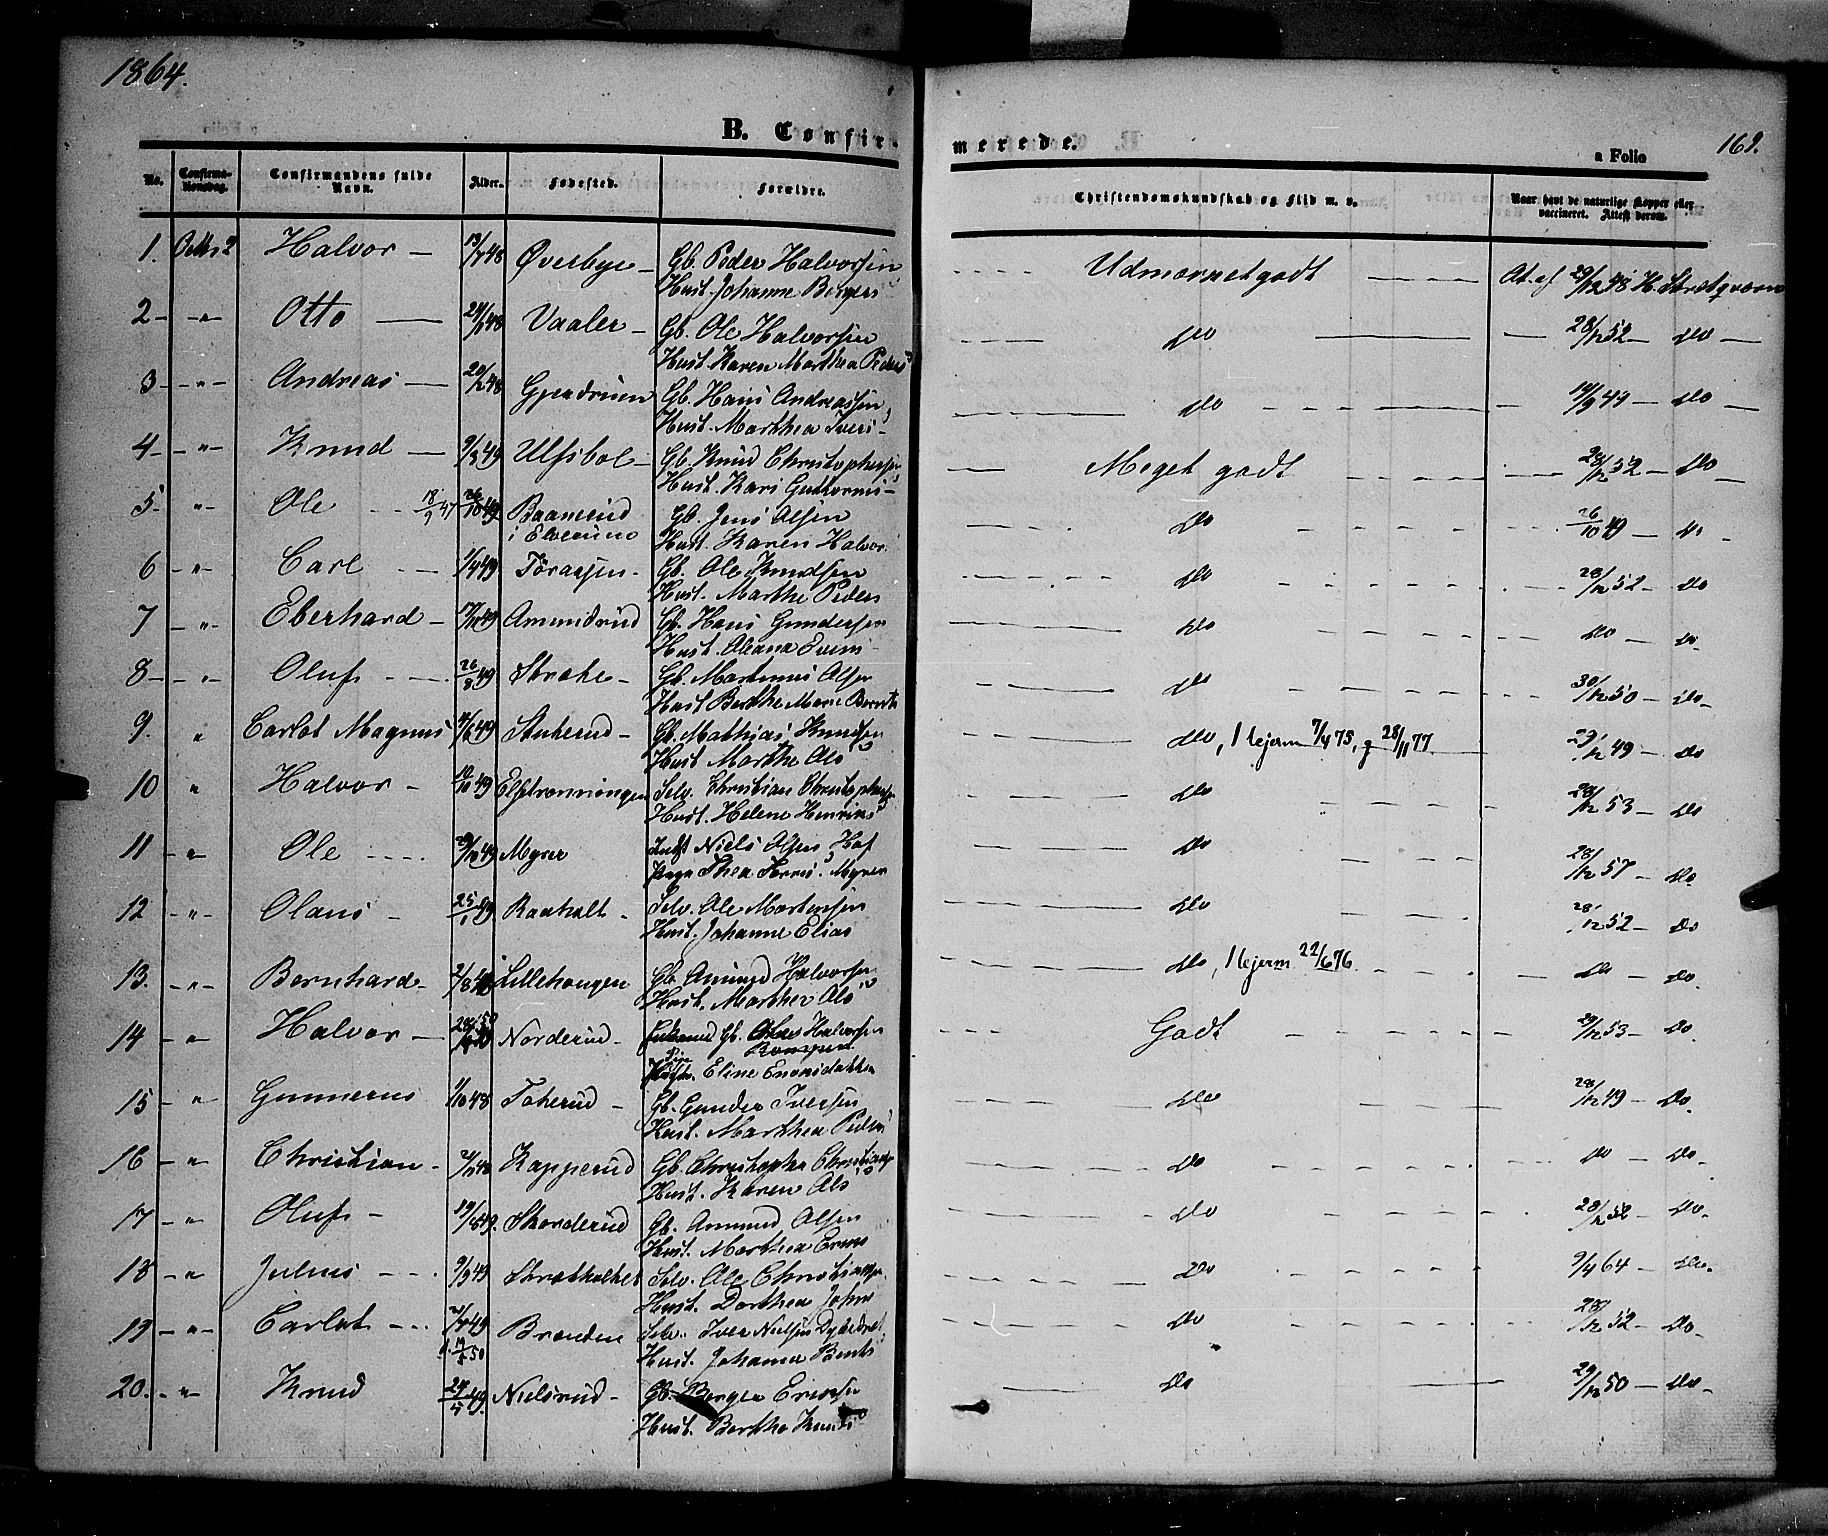 1864.
B. Confir-
merede.
a Folio
169.
No.
Confirma-
tionsdag.
Confirmandens fulde
Navn.
Alder.
Fødested.
Forældre.
Christendomskundskab og Flid m. v.
Naar havt de naturlige Kopper eller
vaccineret. Attest derom.
1. Octbr 2 Halvor — 13/7 48 Øverbye — Gb. Peder Halvorsen Udmærket godt At. af 29/12 48 H.
Hust. Johanne Borgers
2 — " — Otto — 24/9 48 Vaaler — Gb. Ole Halvorsen do 28/12 52 — do —
Hust. Karen Marthea Peders
3 — " — Andreas — 20/12 48 Gjerdruen Gb. Hans Andreassen do 14/9 49 — do —
Hust. Marthea Ivers
4 — " — Knud — 9/3 49 Ulfsbol — Gb. Knud Christophersen Meget godt 28/12 52 — do
Hust. Kari Guthorms
5 — " — Ole 18/9 47 26/10 49 Baamerud Gb. Jens Olsen do 26/10 49 do
i Elverum Hust. Karen Halvor
6 — " — Carl 1/4 49 Toraasen — Gb. Ole Knudsen do 28/12 52 — do
Hust. Marthe Peders
7 — " — Eberhard — 17/11 49 Amundrud Gb. Hans Gundersen do do — do
Hust. Oleana Evens
8 — " — Oluf 26/8 49 Stræte — Gb. Martinus Olsen do 30/12 50 — do
Hust Berthe Marie Bernts
9. " Carlot Magnus 4/6 49 Stuterud — Gb. Mathias Knudsen do, 1 Lejerm 7/4 75, g 28/11 77 29/12 49 — do
Hust Marthe Ols
10 " Halvor — 10/10 49 Elfstrømningen Selv. Christian Christophersen do 28/12 53 — do
Hust. Helene Henriks
11 — " Ole 29/10 49 Myrer Niels Olsen Hof do 28/12 57 — do
Pige Thea Torres. Myrer
12 — " — Olaus — 25/1 49 Raaholt — Selv. Ole Mortensen do 28/12 52 — do
Hust. Johanne Elias
13. — " — Bernhard — 2/8 48 Lillehaugen Gb. Amund Halvorsen do, 1 Lejerm 22/6 76 do — do
Hust. Marthea Ols
14 — " Halvor — Norderud — Gb. Halvorsen Godt 29/12 53 — do
Eline Enersdatter
15 — " Gunnerus 1/10 48 Toherud — Gb. Gunder Iversen do 28/12 49 — do
Hust. Marthea Peders
16 — " Christian — Kapperud Gb. Christopher Christiansen do do — do
Hust. Karen Ols
17 — " — Oluf — 19/8 49. Skorderud Gb. Amund Olsen do 28/12 52 — do
Hust. Marthea Evens
18 — " Julius 9/9 49 Strætholtet Selv. Ole Christiansen do 9/4 64 — do
Hust. Dorthea Johns
19 — " — Carlot 49 Brænden Selv. Iver Nielsen do 28/12 52 — do
50 Hust. Johanne Bents
20. — " Knud 24/5 49. Nielsrud — Gb. Borger Ericsen do 29/12 50 — do
Hust. Berthe Knuds